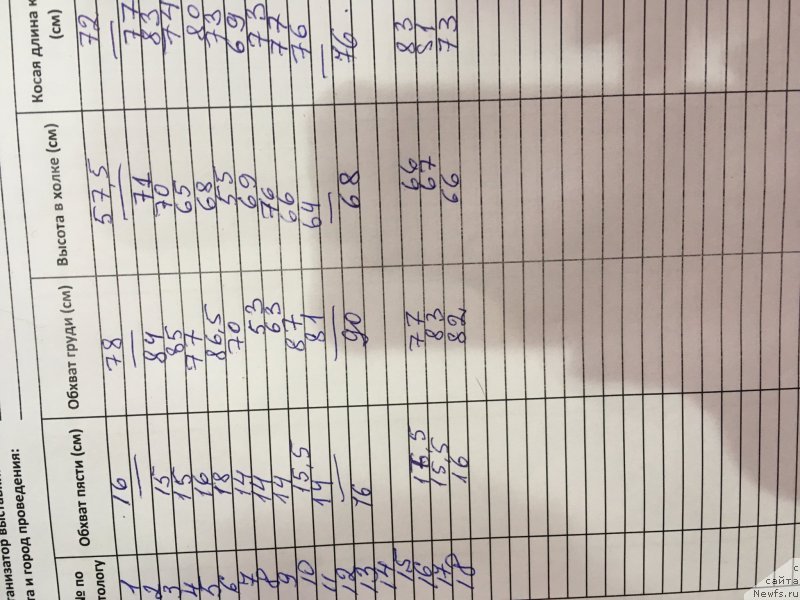 ганизатор выстав
та и город проведения:
№ по
тологу Обхват пясти (см) Обхват груди (см) Высота в холке (см) Косая длина к
(см)
1 16 78 57,5 72
2 — — — —
3 15 84 71 77
4 15 85 70 83
5 16 77 65 74
6 18 86,5 68 80
7 14 70 55 73
8 14 53 69 69
9 14 63 76 73
10 15,5 87 66 77
11 14 81 64 76
12 — — — —
13 16 90 68 76.
14
15
16 77 66 83
17 15,5 83 67 81
18 16 82 66 73
с
сайта
Newfs.ru